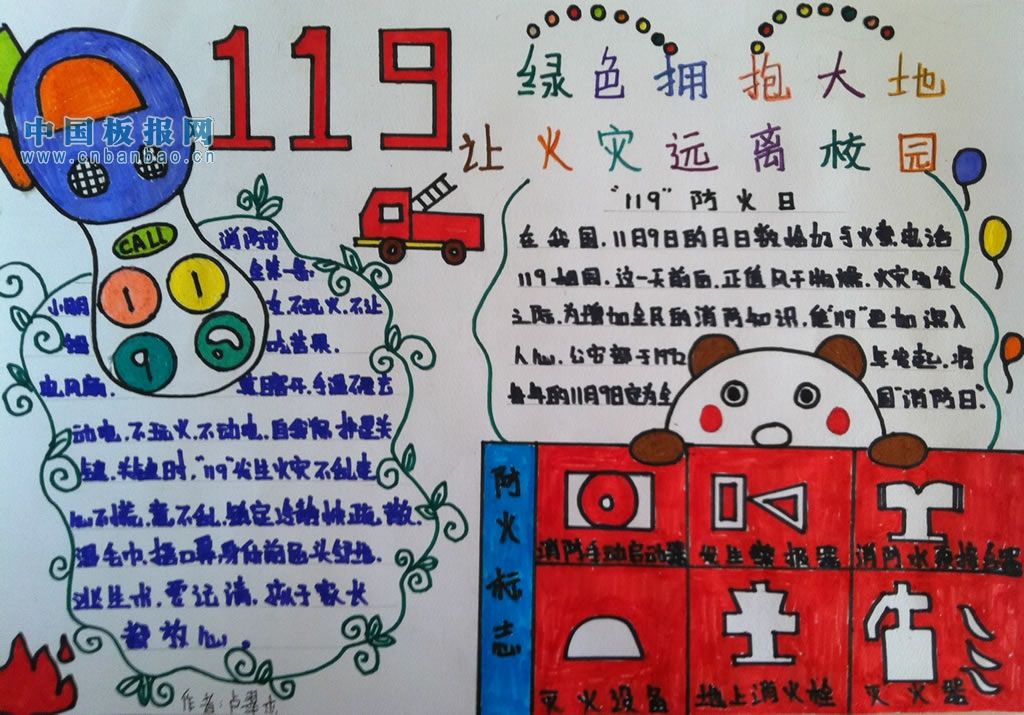 119
绿色拥抱大地
让火灾远离校园
中国板报网
www.cnbanbao.cn
CALL
1 1
9
消防
小明 玩火.不让
吃苦果.
电风扇.
动电.不玩火.不动电.自我保护是关
键.关键时."119"发生火灾不乱走
心不慌.意不乱.镇定冷静快疏散.
湿毛巾.捂口鼻.身体前
水.要记清.孩子家长
都放心。
作者:卢
"119"防火日
在我国.11月9日的月日数恰好与火警电话
119相同.这一天前后.正值风干物燥.火灾多发
之际.为增加全民的消防知识.使"119"更加深入
人心.公安部于1992年发起.将
每年的11月9日定为全国"消防日".
防火标志
消防手动启动器
发生警报器
消防水泵接合器
灭火设备
地上消火栓
灭火器